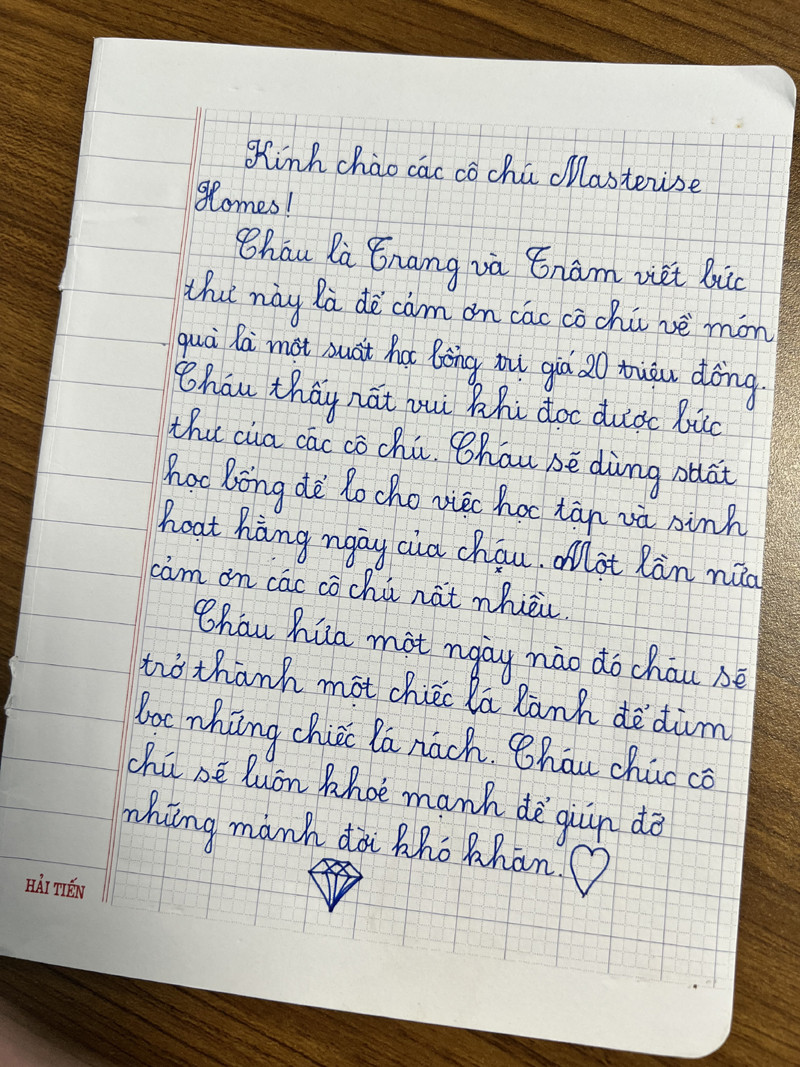 Kính chào các cô chú Masterise
Homes!
Cháu là Trang và Trâm viết bức
thư này là để cảm ơn các cô chú về món
quà là một suất học bổng trị giá 20 triệu đồng.
Cháu thấy rất vui khi đọc được bức
thư của các cô chú. Cháu sẽ dùng suất
học bổng để lo cho việc học tập và sinh
hoạt hằng ngày của cháu. Một lần nữa
cảm ơn các cô chú rất nhiều.
Cháu hứa một ngày nào đó cháu sẽ
trở thành một chiếc lá lành để đùm
bọc những chiếc lá rách. Cháu chúc cô
chú sẽ luôn khoẻ mạnh để giúp đỡ
những mảnh đời khó khăn.
HẢI TIẾN